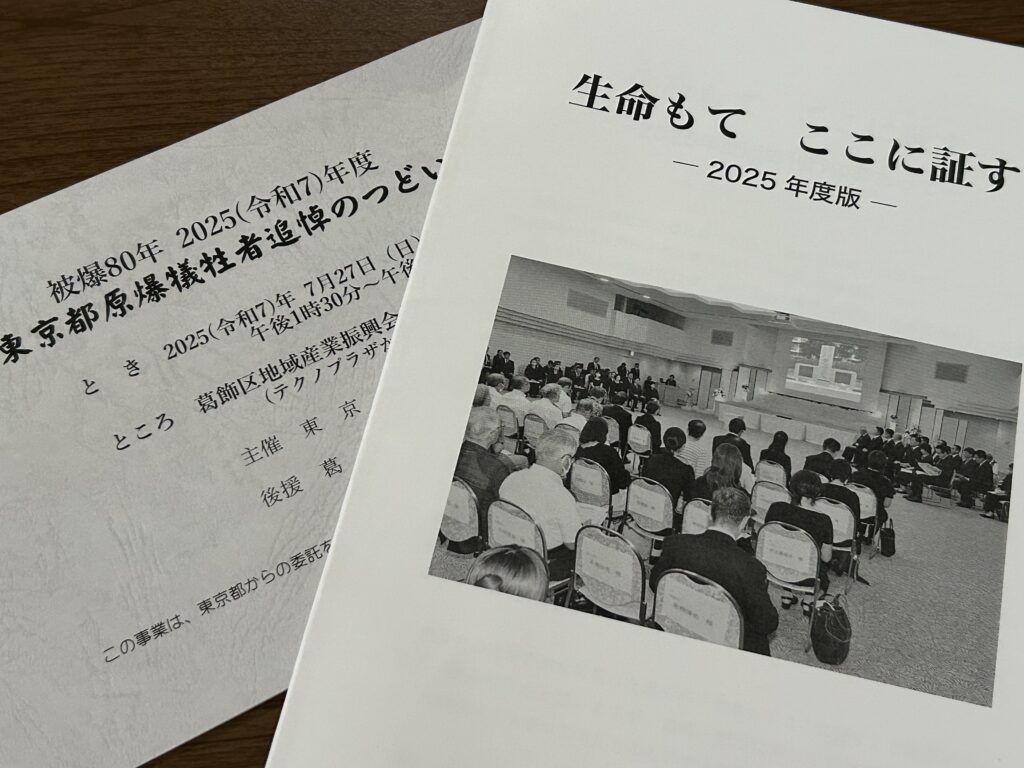 被爆80年 2025(令和7)年度
東京都原爆犠牲者追悼のつどい
とき 2025(令和7)年 7月27日(日)
午後1時30分～午後
ところ 葛飾区地域産業振興会
(テクノプラザか
主催 東京
後援 葛
この事業は、東京都からの委託を
生命もて ここに証す
― 2025年度版 ―